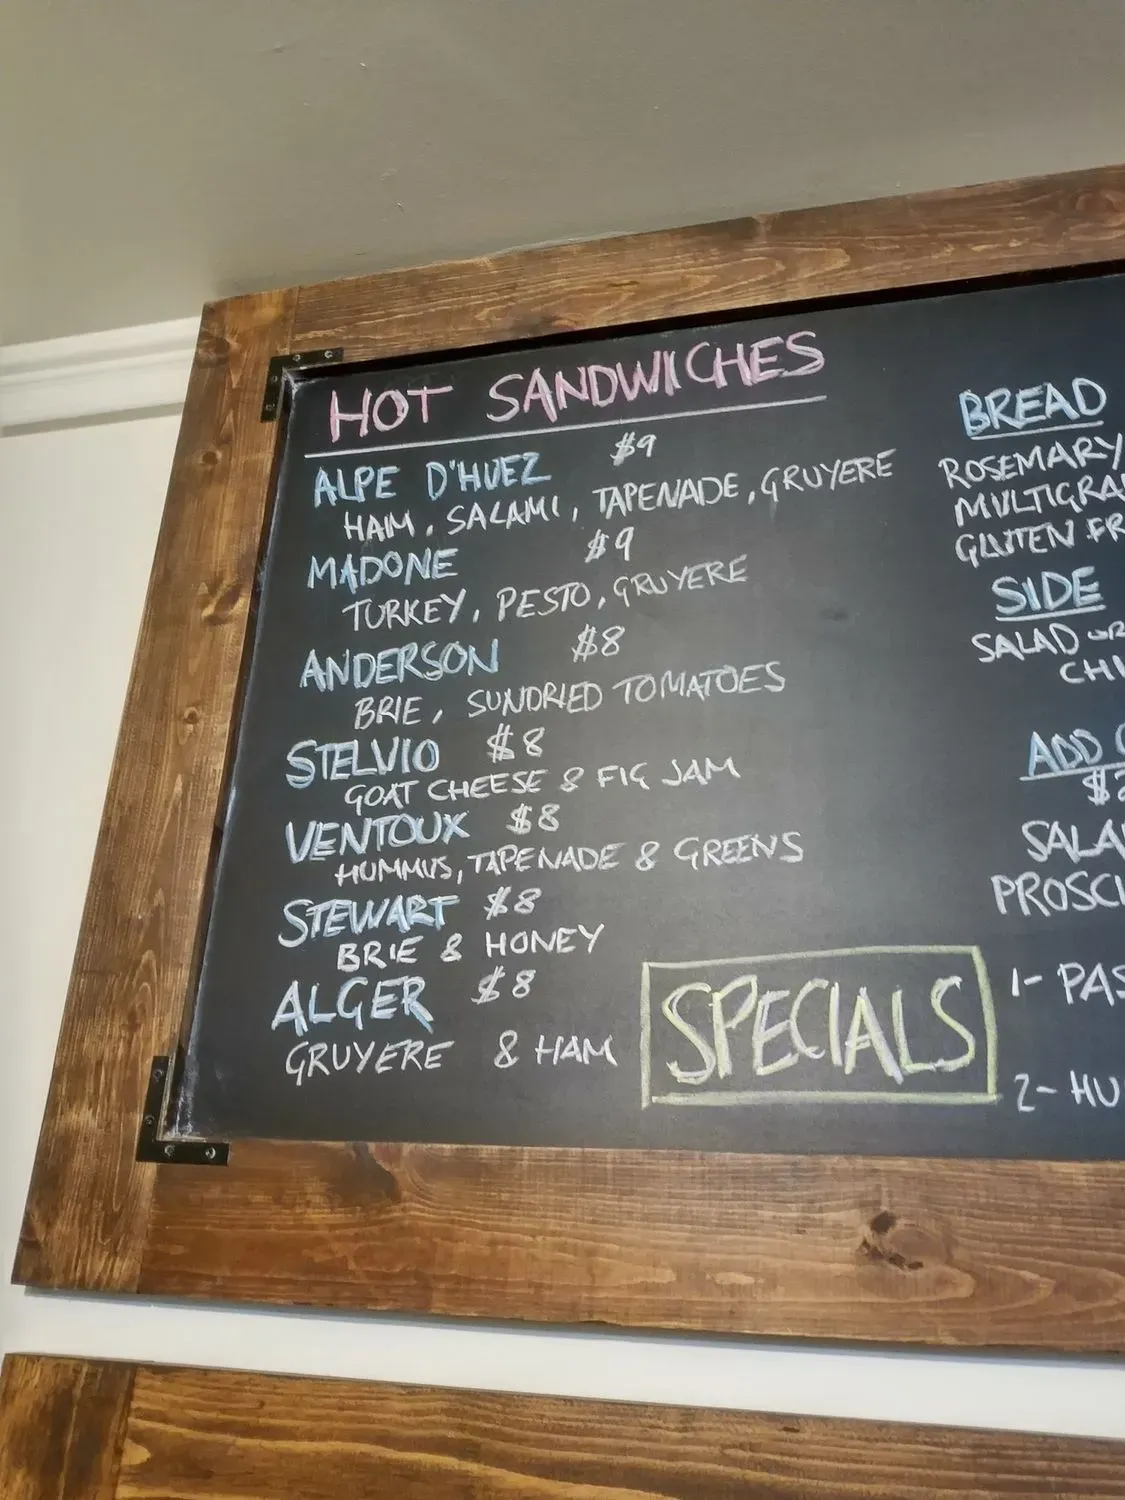 HOT SANDWICHES
ALPE D'HUEZ $9
HAM, SALAMI, TAPENADE, GRUYERE
MADONE $9
TURKEY, PESTO, GRUYERE
ANDERSON $8
BRIE, SUNDRIED TOMATOES
STELVIO $8
GOAT CHEESE & FIG JAM
VENTOUX $8
HUMMUS, TAPENADE & GREENS
STEWART $8
BRIE & HONEY
ALGER $8
GRUYERE & HAM
SPECIALS
BREAD
ROSEMARY
GLUTEN
SIDE
SALAD OR
ADD
1-
2-